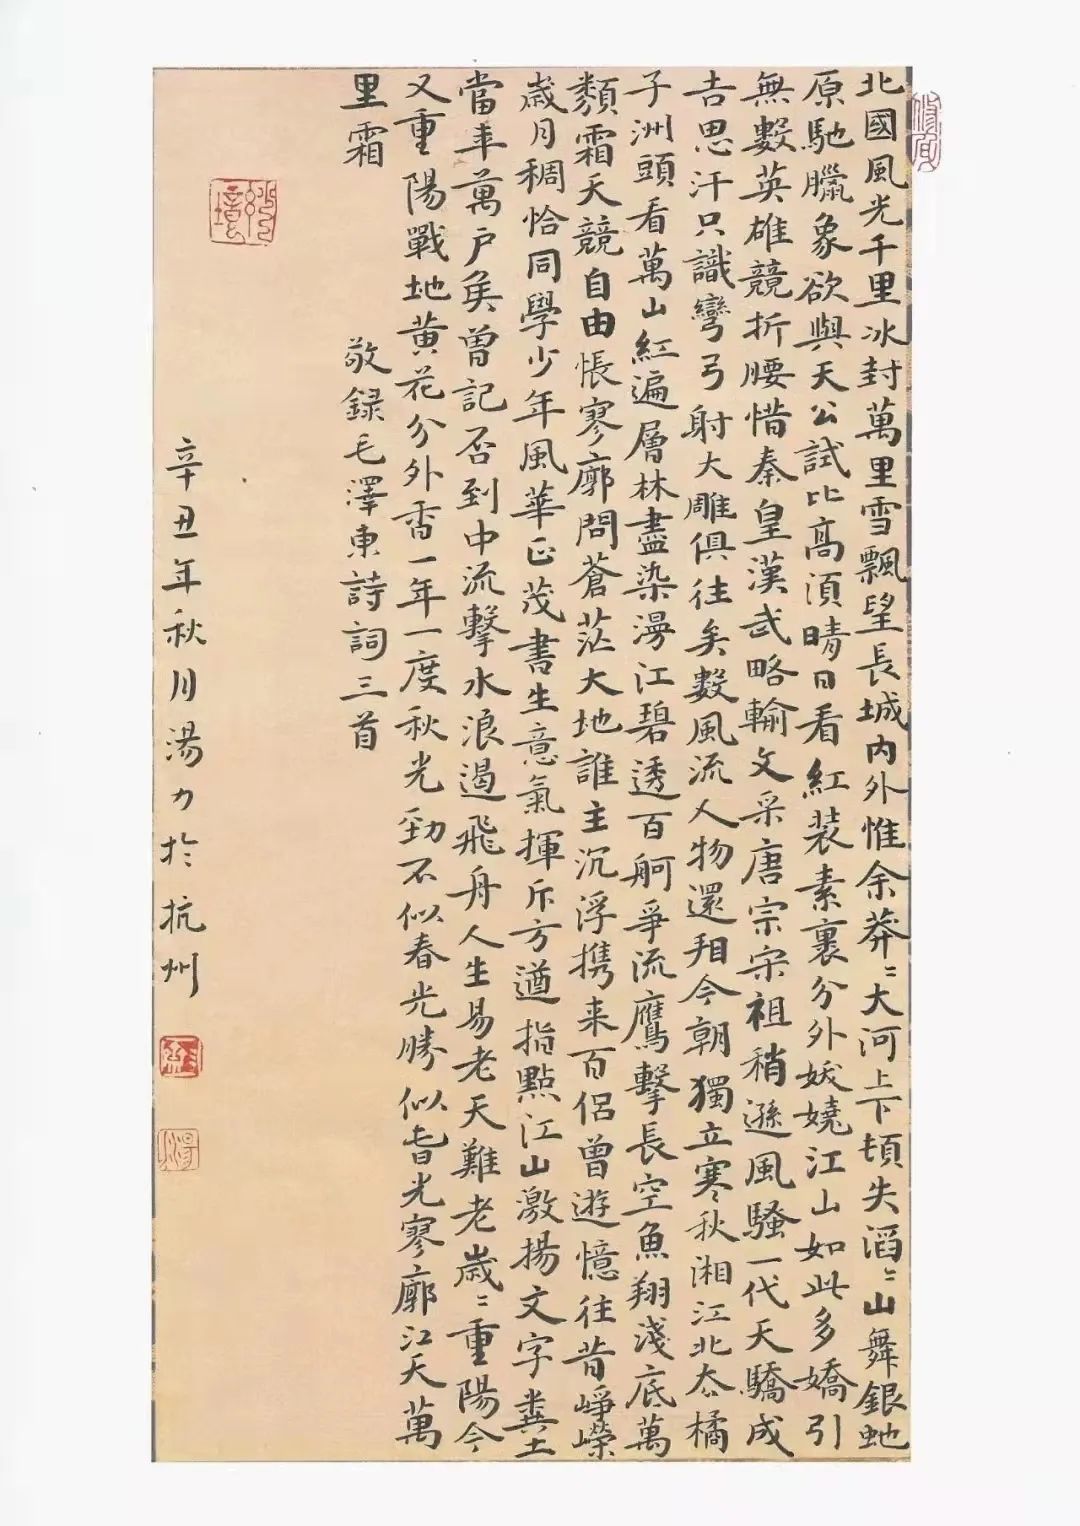 北國風光千里冰封萬里雪飄望長城內外惟余莽〻大河上下頓失滔〻山舞銀虵
原馳臘象欲與天公試比高須晴日看紅裝素裹分外妖嬈江山如此多嬌引
無數英雄競折腰惜秦皇漢武略輸文采唐宗宋祖稍遜風騷一代天驕成
吉思汗只識彎弓射大雕俱往矣數風流人物還看今朝獨立寒秋湘江北去橘
子洲頭看萬山紅遍層林盡染漫江碧透百舸爭流鷹擊長空魚翔淺底萬
類霜天競自由悵寥廓問蒼茫大地誰主沉浮携来百侶曾遊憶往昔崢嶸
歲月稠恰同學少年風華正茂書生意氣揮斥方遒指點江山激揚文字糞土
當年萬户矦曾記否到中流擊水浪遏飛舟人生易老天難老歲〻重陽今
又重陽戰地黄花分外香一年一度秋光勁不似春光勝似春光寥廓江天萬
里霜
敬録毛澤東詩詞三首
辛丑年秋月湯力於杭州